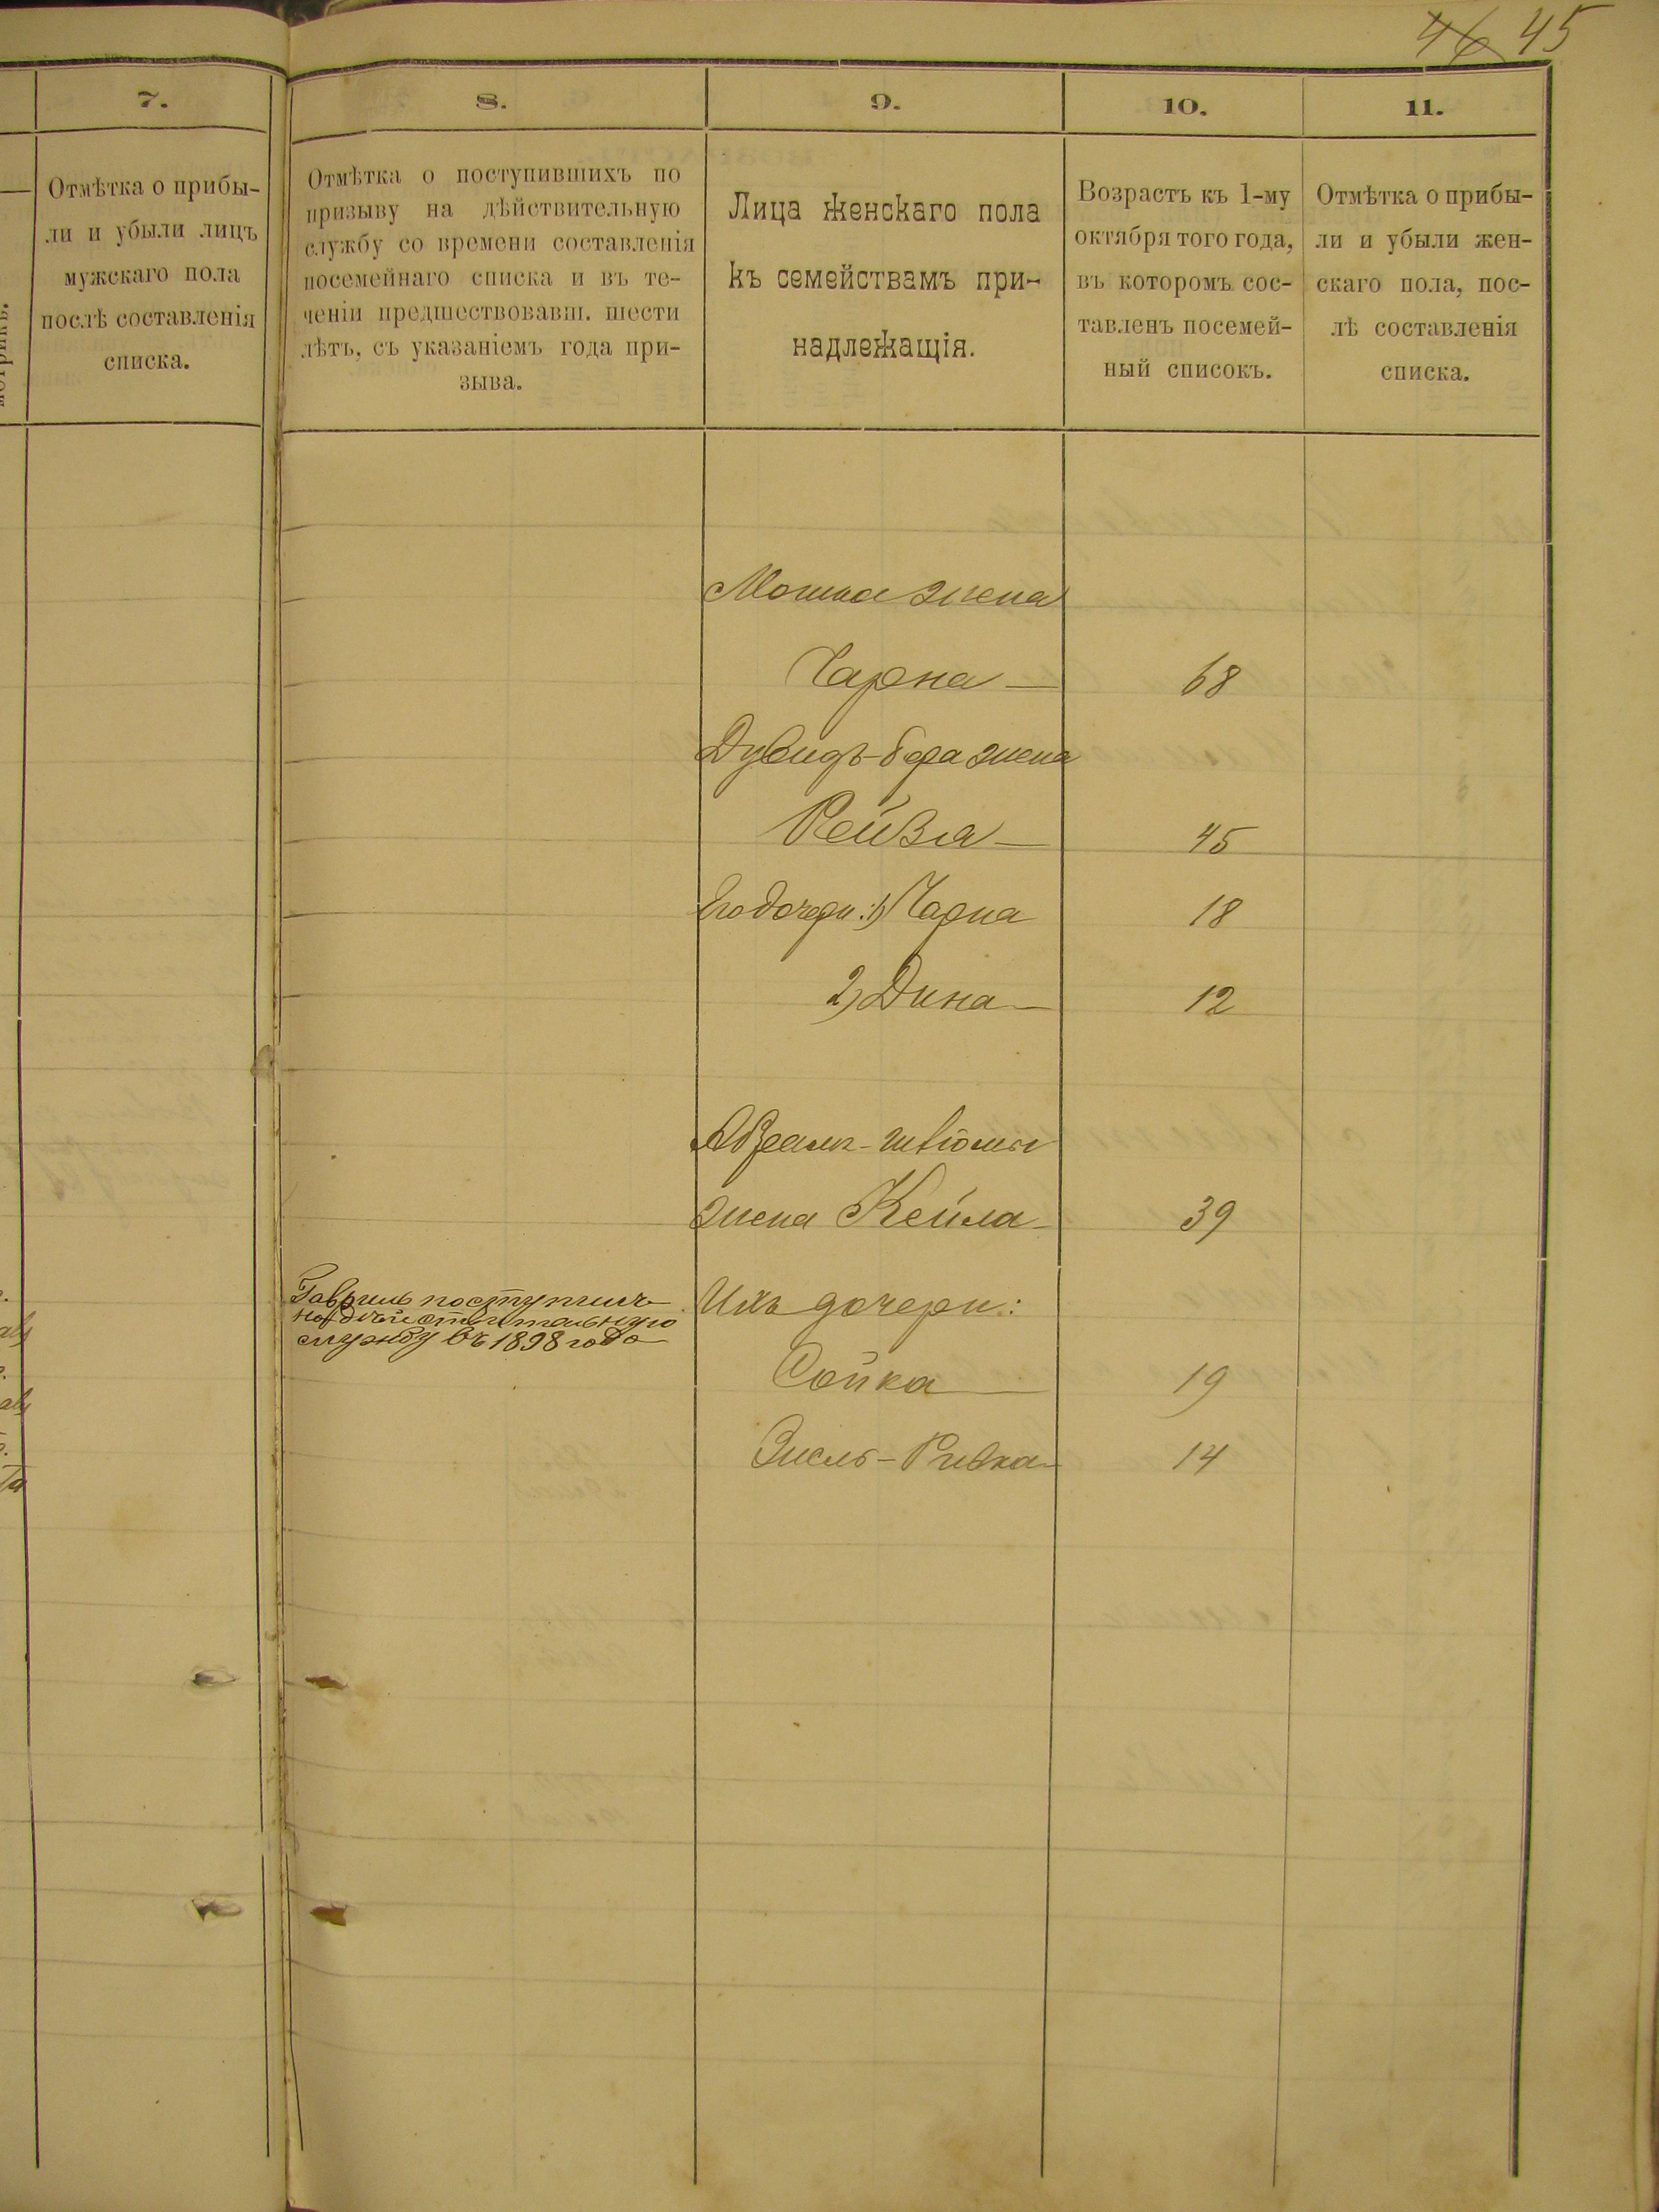 46 45
7.
8.
9.
10.
11.
Отмѣтка о прибы-
ли и убыли лицъ
мужскаго пола
послѣ составленія
списка.
Отмѣтка о поступившихъ по
призыву на дѣйствительную
службу со времени составленія
посемейнаго списка и въ те-
ченіи предшествовавш. шести
лѣтъ, съ указаніемъ года при-
зыва.
Лица женскаго пола
къ семействамъ при-
надлежащія.
Возрастъ къ 1-му
октября того года,
въ которомъ сос-
тавленъ посемей-
ный списокъ.
Отмѣтка о прибы-
ли и убыли жен-
скаго пола, пос-
лѣ составленія
списка.
Мошка жена
Чарна — 68
Дувидъ-бера жена
Рейзя — 45
Его дочери: 1) Чарна 18
2) Дина — 12
Абрамъ-
жена Кейла — 39
Гавриль поступилъ
на дѣйствительную
службу въ 1898 году
Ихъ дочери:
Сойка — 19
Зисль-Ривка — 14